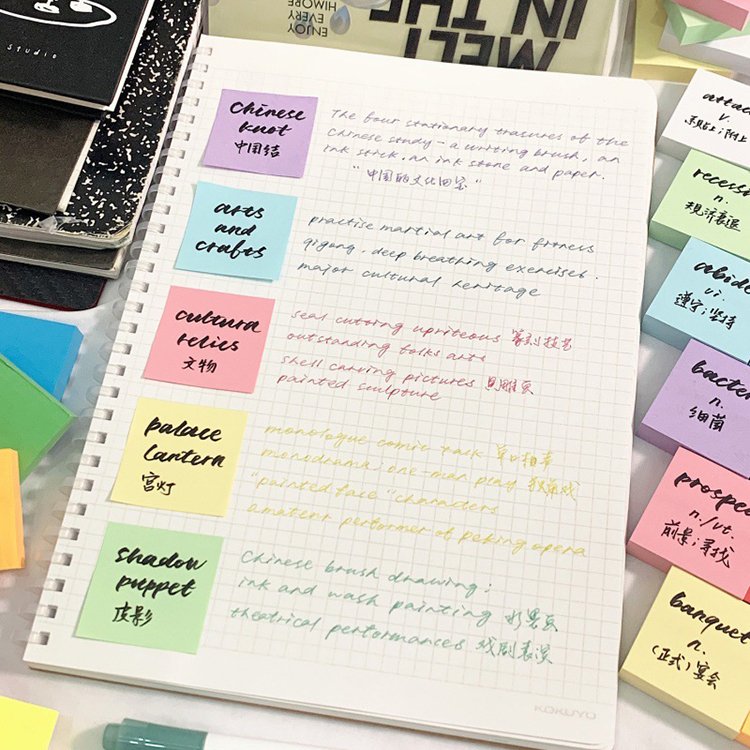 Studio
ENJOY
EVERY
HIMORE
MELT
IN THE
Chinese
knot
中国结
The four stationary trasures of the
Chinese study - a writing brush, an
ink stick, an ink stone and paper.
"中国的文化四宝"
arts
and
crafts
practise martial art for fitness
qigong, deep breathing exercises.
major cultural heritage
cultura
relics
文物
seal cutoring upriteous 篆刻技艺
outstanding folks arts
shell carving pictures 贝雕页
painted sculpture
palace
lantern
宫灯
monologue comic talk 单口相声
monodrama; one-man play 独角戏
"painted face" characters
amaterr performer of peking opera
shadow
puppet
皮影
Chinese brush drawing;
ink and wash painting 水墨页
theatrical performances 戏剧表演
KOKUYO
attac
v.
系贴上;附上
recess
n.
衰退
abide
vi.
遵守;坚持
bacter
n.
细菌
prospec
n./vt.
前景;寻找
banquet
n.
(正式)宴会